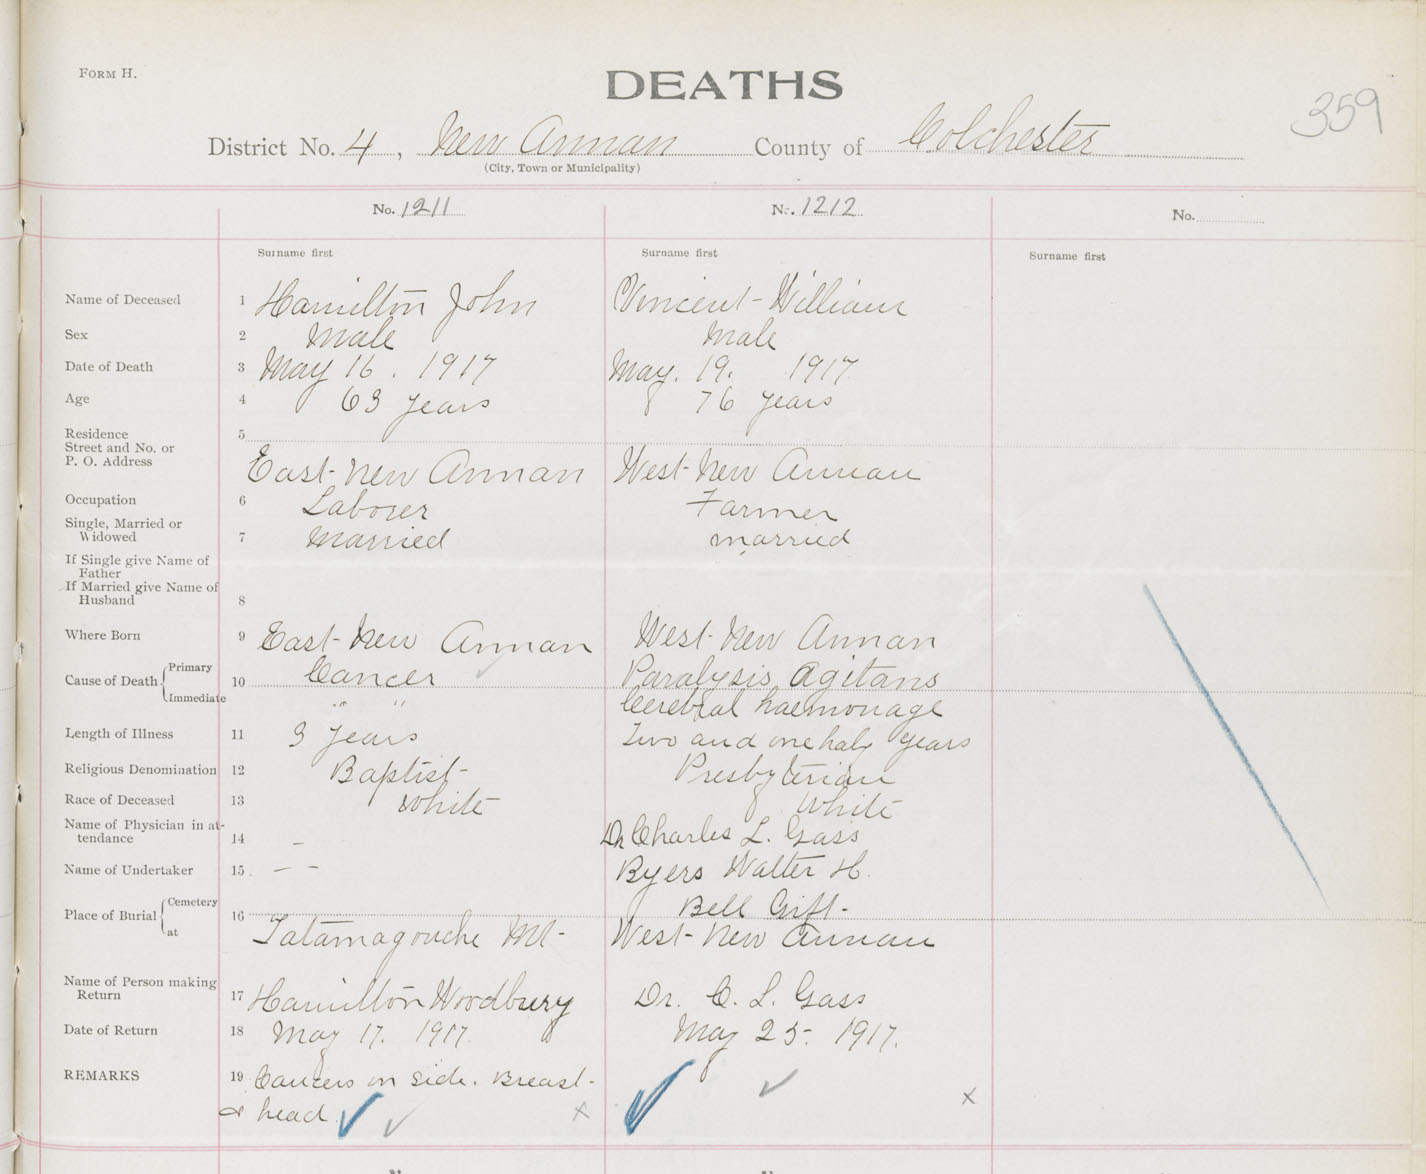 FORM H.
DEATHS
359
District No. 4, New Annan County of Colchester
(City, Town or Municipality)
No. 1211 No. 1212 No.
Surname first Surname first Surname first
Name of Deceased 1 Hamilton John Vincent William
Sex 2 Male Male
Date of Death 3 May 16. 1917 May. 19. 1917
Age 4 63 years 76 years
Residence 5
Street and No. or
P. O. Address East New Annan West New Annan
Occupation 6 Laborer Farmer
Single, Married or
Widowed 7 Married married
If Single give Name of
Father
If Married give Name of
Husband 8
Where Born 9 East New Annan West New Annan
Cause of Death { Primary 10 Cancer Paralysis Agitans
Immediate " " Cerebral haemorrage
Length of Illness 11 3 years Two and one half years
Religious Denomination 12 Baptist Presbyterian
Race of Deceased 13 White White
Name of Physician in at-
tendance 14 – Dr Charles L. Gass
Name of Undertaker 15. – – Byers Walter H.
Place of Burial { Cemetery 16 Bell Gift
at Tatamagouche Mt West New Annan
Name of Person making
Return 17 Hamilton Woodbury Dr. C. L. Gass
Date of Return 18 May 17. 1917 May 25. 1917.
REMARKS 19 Cancers on side. Breast
& head ✓ ✓ x ✓ ✓ x